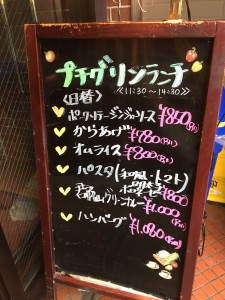 プチグリンランチ
≪11:30～14:30≫
〈日替〉
ポークジンジャーソース ¥850
からあげ ¥780
オムライス ¥800
パスタ(和風・トマト)
¥800
グリーンカレー ¥1,000
ハンバーグ ¥1,080